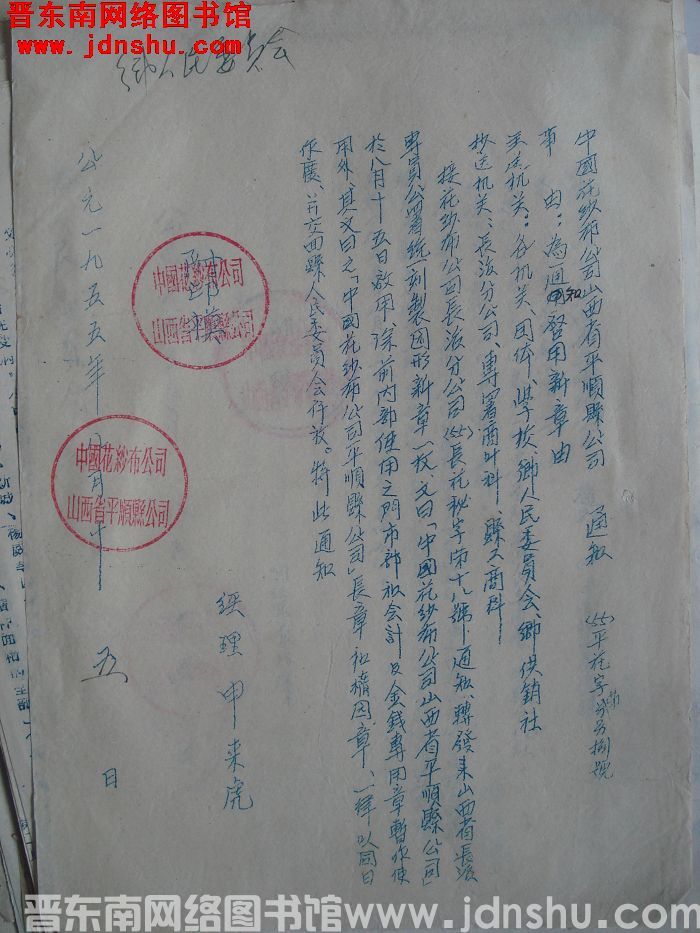 晋东南网络图书馆
www.jdnshu.com
乡人民委员会
中國花紗布公司山西省平順縣公司 通知 (55)平花字第捌號
事由:為通知啓用新章由
主送机关:各机关、团体、学校、鄉人民委員会、鄉供銷社
抄送机关:長治分公司、專署商业科、縣工商科
接花紗布公司長治分公司(55)長花秘字第十八號通知、轉發来山西省長治
專員公署統一刻製圆形新章一枚、文曰「中國花紗布公司山西省平順縣公司」
於八月十五日啟用、除前内部使用之門市部和会計及金錢專用章暫作使
用外、其文曰之「中國花紗布公司平順縣公司」長章和橢圆章、一律以同日
作廢、並交回縣人民委員会存放。特此通知
經理 申来虎
公元一九五五年 八月十五日
中國花紗布公司
山西省平順縣公司
中國花紗布公司
山西省平順縣公司
晋东南网络图书馆www.jdnshu.com